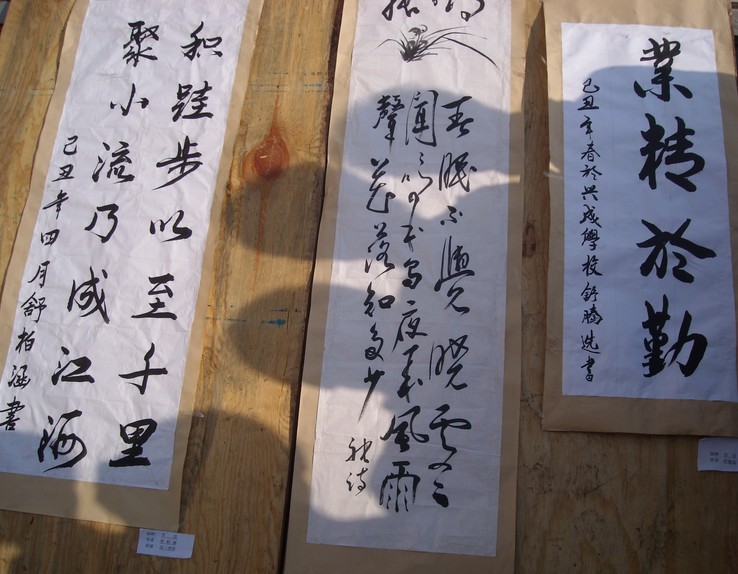 業精於勤
己丑年春於兴成學校舒騰書
春眠不覺曉處々
聞啼鳥夜来風雨
聲花落知多少
积跬步以至千里
聚小流乃成江海
己丑年四月舒柏涵書